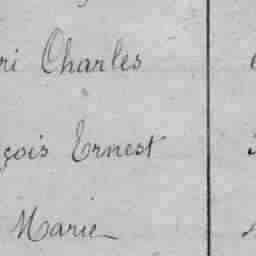 ri Charles
çois Ernest
Marie